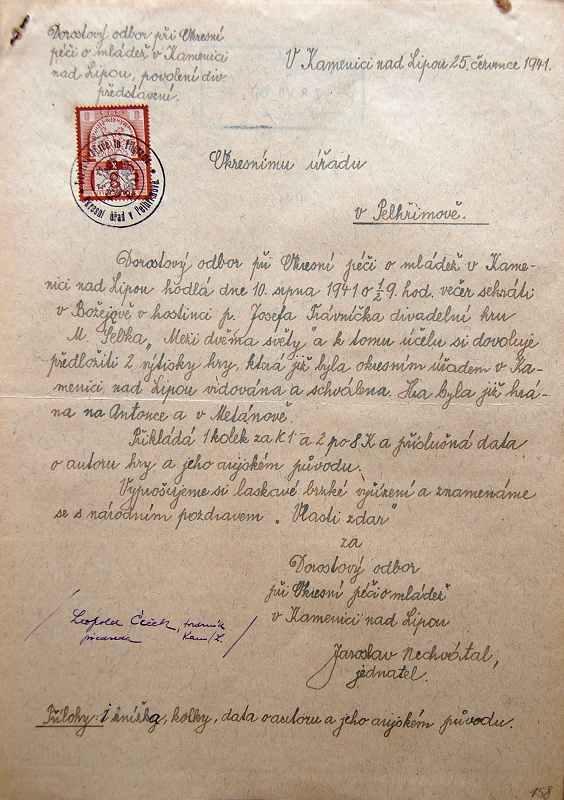 Dorostový odbor při Okresní
péči o mládež v Kamenici
nad Lipou, povolení div.
představení.
V Kamenici nad Lipou 25. července 1941.
8
Okresní úřad v Pelhřimově
Okresnímu úřadu
v Pelhřimově.
Dorostový odbor při Okresní péči o mládež v Kame-
nici nad Lipou hodlá dne 10. srpna 1941 o ½9. hod. večer sehráti
v Božejově v hostinci p. Josefa Trávníčka divadelní hru
M. Selka „Mezi dvěma světy" a k tomu účelu si dovoluje
předložiti 2 výtisky hry, která již byla okresním úřadem v Ka-
menici nad Lipou vidována a schválena. Hra byla již hrá-
na na Antonce a v Metánově.
Přikládá 1 kolek za K 1- a 2 po 8 K a příslušná data
o autoru hry a jeho arijském původu.
Vyprošujeme si laskavé brzké vyřízení a znamenáme
se s národním pozdravem „Vlasti zdar"
za
Dorostový odbor
při Okresní péči o mládež
v Kamenici nad Lipou
Leopold
předseda Kam/L.
Jaroslav Nechvátal,
jednatel.
Přílohy: 1 knížka, kolky, data o autoru a jeho arijském původu.
158